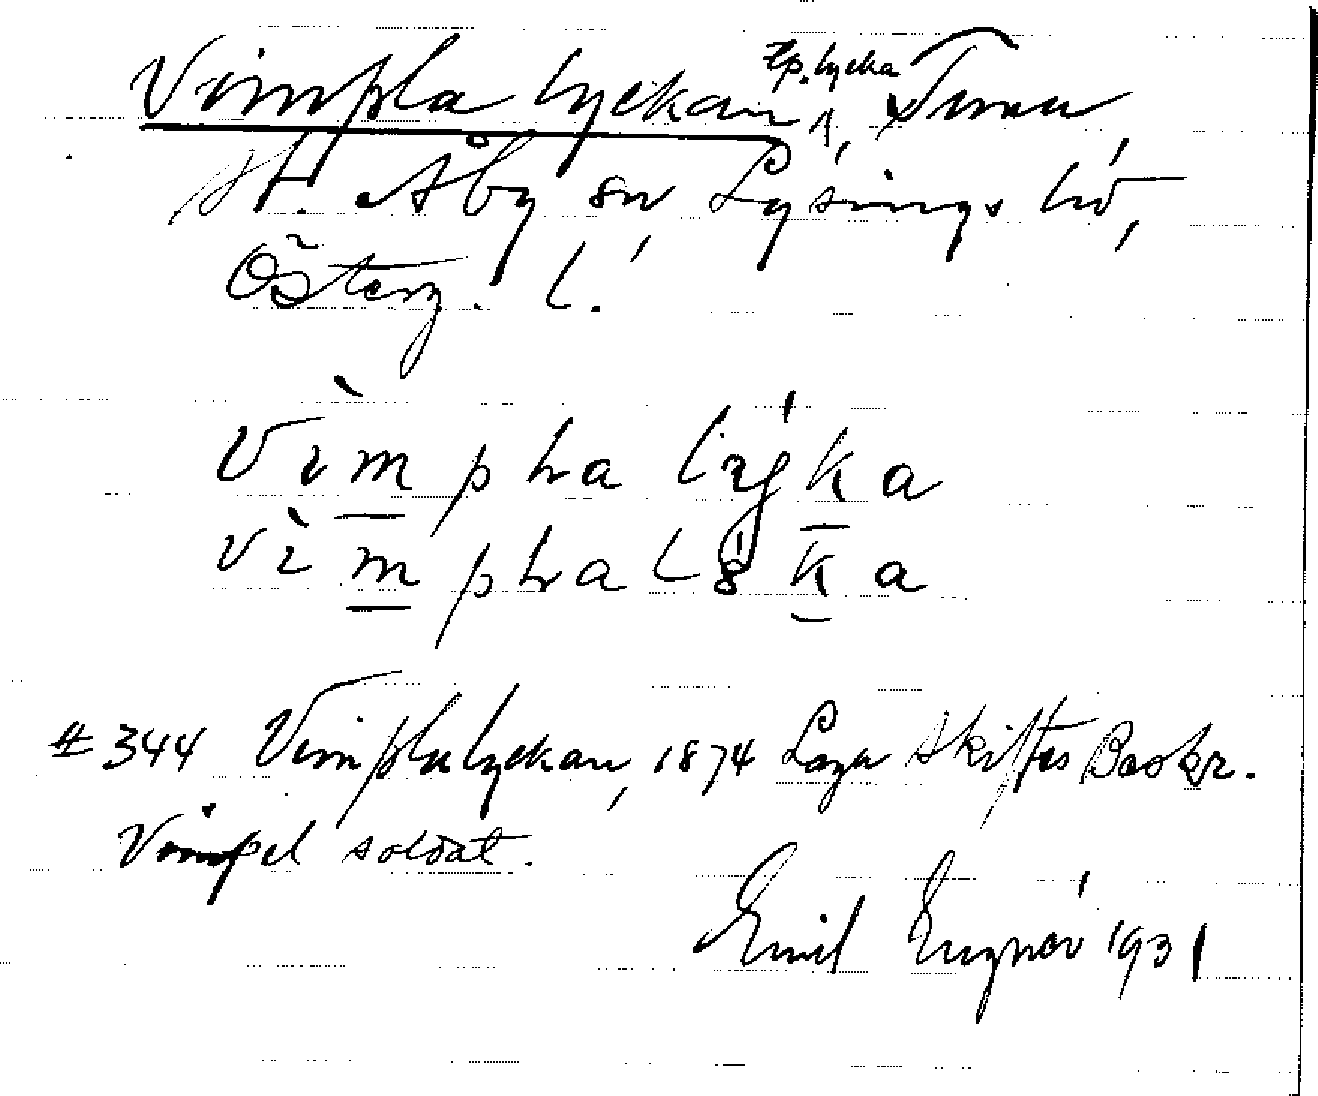 Vimpla lyckan, tp. lycka,
St. Åby sn Lysings hd,
Österg. l.
Vìmpla lýka
vìmplaløka
# 344 Vimplalyckan, 1874 Laga skiftes Beskr.
Vimpel soldat.
Emil 1931